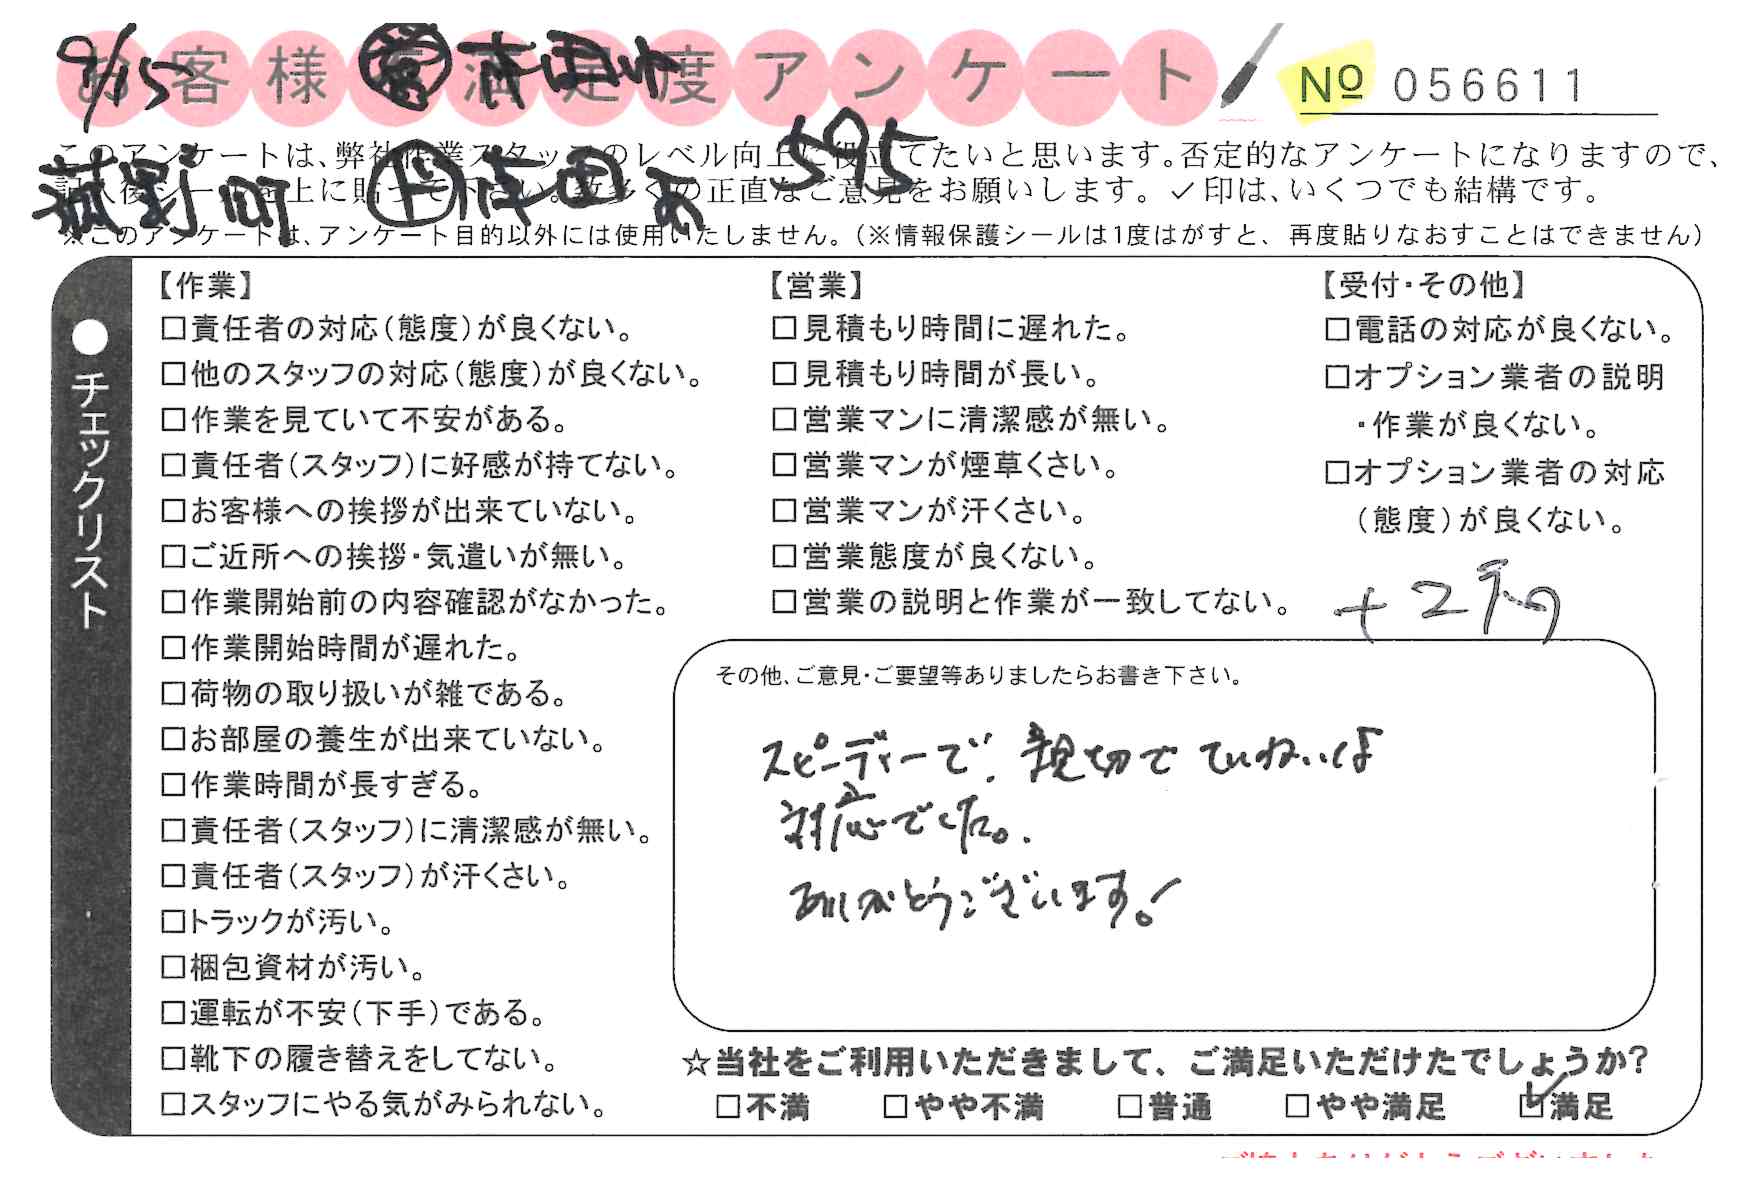 お客様満足度アンケート
9/15
№ 056611
595
このアンケートは、弊社作業スタッフのレベル向上に役立てたいと思います。否定的なアンケートになりますので、
記入後シールを上に貼って下さい。数多くの正直なご意見をお願いします。✓印は、いくつでも結構です。
※このアンケートは、アンケート目的以外には使用いたしません。（※情報保護シールは1度はがすと、再度貼りなおすことはできません）
●チェックリスト
【作業】
□責任者の対応（態度）が良くない。
□他のスタッフの対応（態度）が良くない。
□作業を見ていて不安がある。
□責任者（スタッフ）に好感が持てない。
□お客様への挨拶が出来ていない。
□ご近所への挨拶・気遣いが無い。
□作業開始前の内容確認がなかった。
□作業開始時間が遅れた。
□荷物の取り扱いが雑である。
□お部屋の養生が出来ていない。
□作業時間が長すぎる。
□責任者（スタッフ）に清潔感が無い。
□責任者（スタッフ）が汗くさい。
□トラックが汚い。
□梱包資材が汚い。
□運転が不安（下手）である。
□靴下の履き替えをしてない。
□スタッフにやる気がみられない。
【営業】
□見積もり時間に遅れた。
□見積もり時間が長い。
□営業マンに清潔感が無い。
□営業マンが煙草くさい。
□営業マンが汗くさい。
□営業態度が良くない。
□営業の説明と作業が一致してない。
【受付・その他】
□電話の対応が良くない。
□オプション業者の説明
・作業が良くない。
□オプション業者の対応
（態度）が良くない。
その他、ご意見・ご要望等ありましたらお書き下さい。
スピーディーで、親切でていねいな
対応でした。
ありがとうございます!
☆当社をご利用いただきまして、ご満足いただけたでしょうか?
□不満 □やや不満 □普通 □やや満足 ☑満足